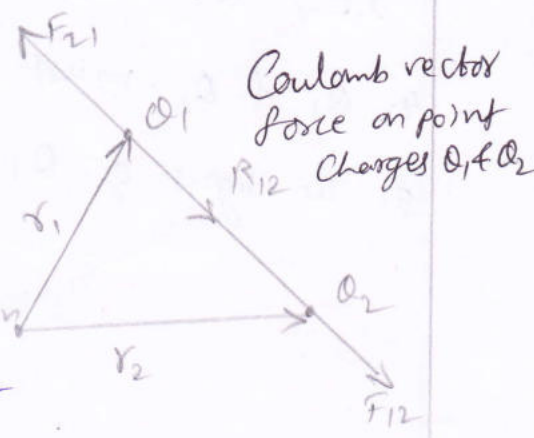 F21
Coulomb vector
force on point
charges Q1 & Q2
Q1
R12
r1
Q2
r2
F12